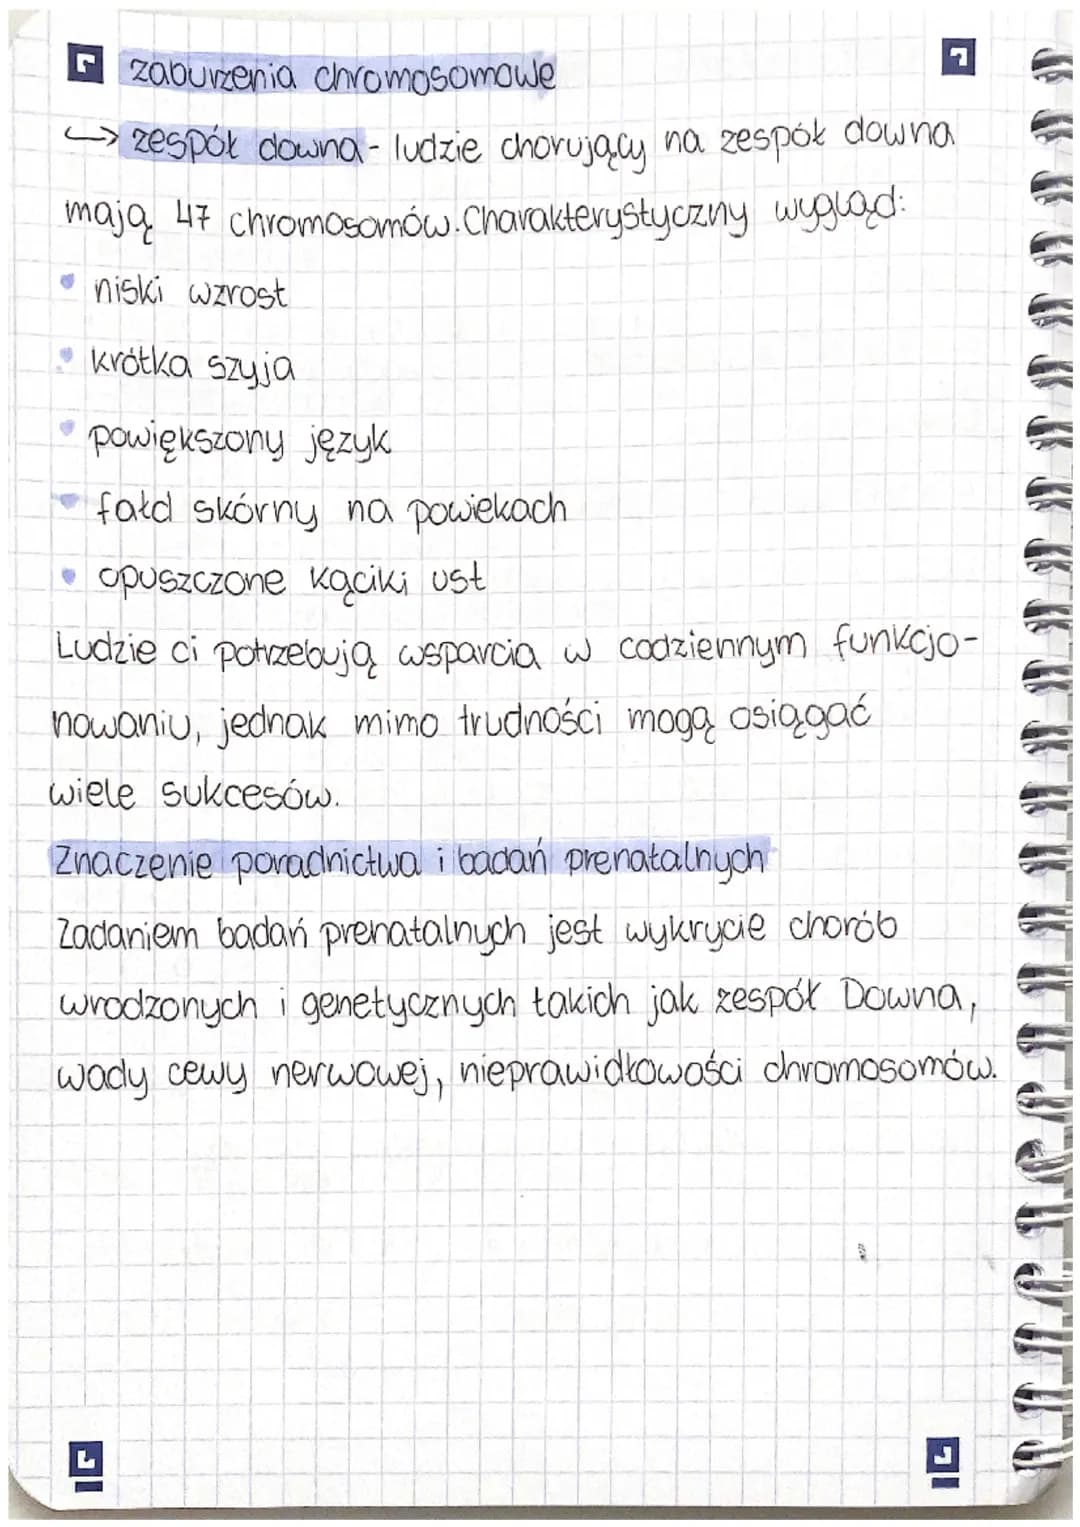 zaburzenia chromosomowe
↳ zespół downa - ludzie chorujący na zespół downa
mają 47 chromosomów. Charakterystyczny wygląd:
• niski wzrost
• krótka szyja
• powiększony język
• fałd skórny na powiekach
• opuszczone kąciki ust
Ludzie ci potrzebują wsparcia w codziennym funkcjo-
nowaniu, jednak mimo trudności mogą osiągać
wiele sukcesów.
Znaczenie poradnictwa i badań prenatalnych
Zadaniem badań prenatalnych jest wykrycie chorób
wrodzonych i genetycznych takich jak zespół Downa,
wady cewy nerwowej, nieprawidłowości chromosomów.